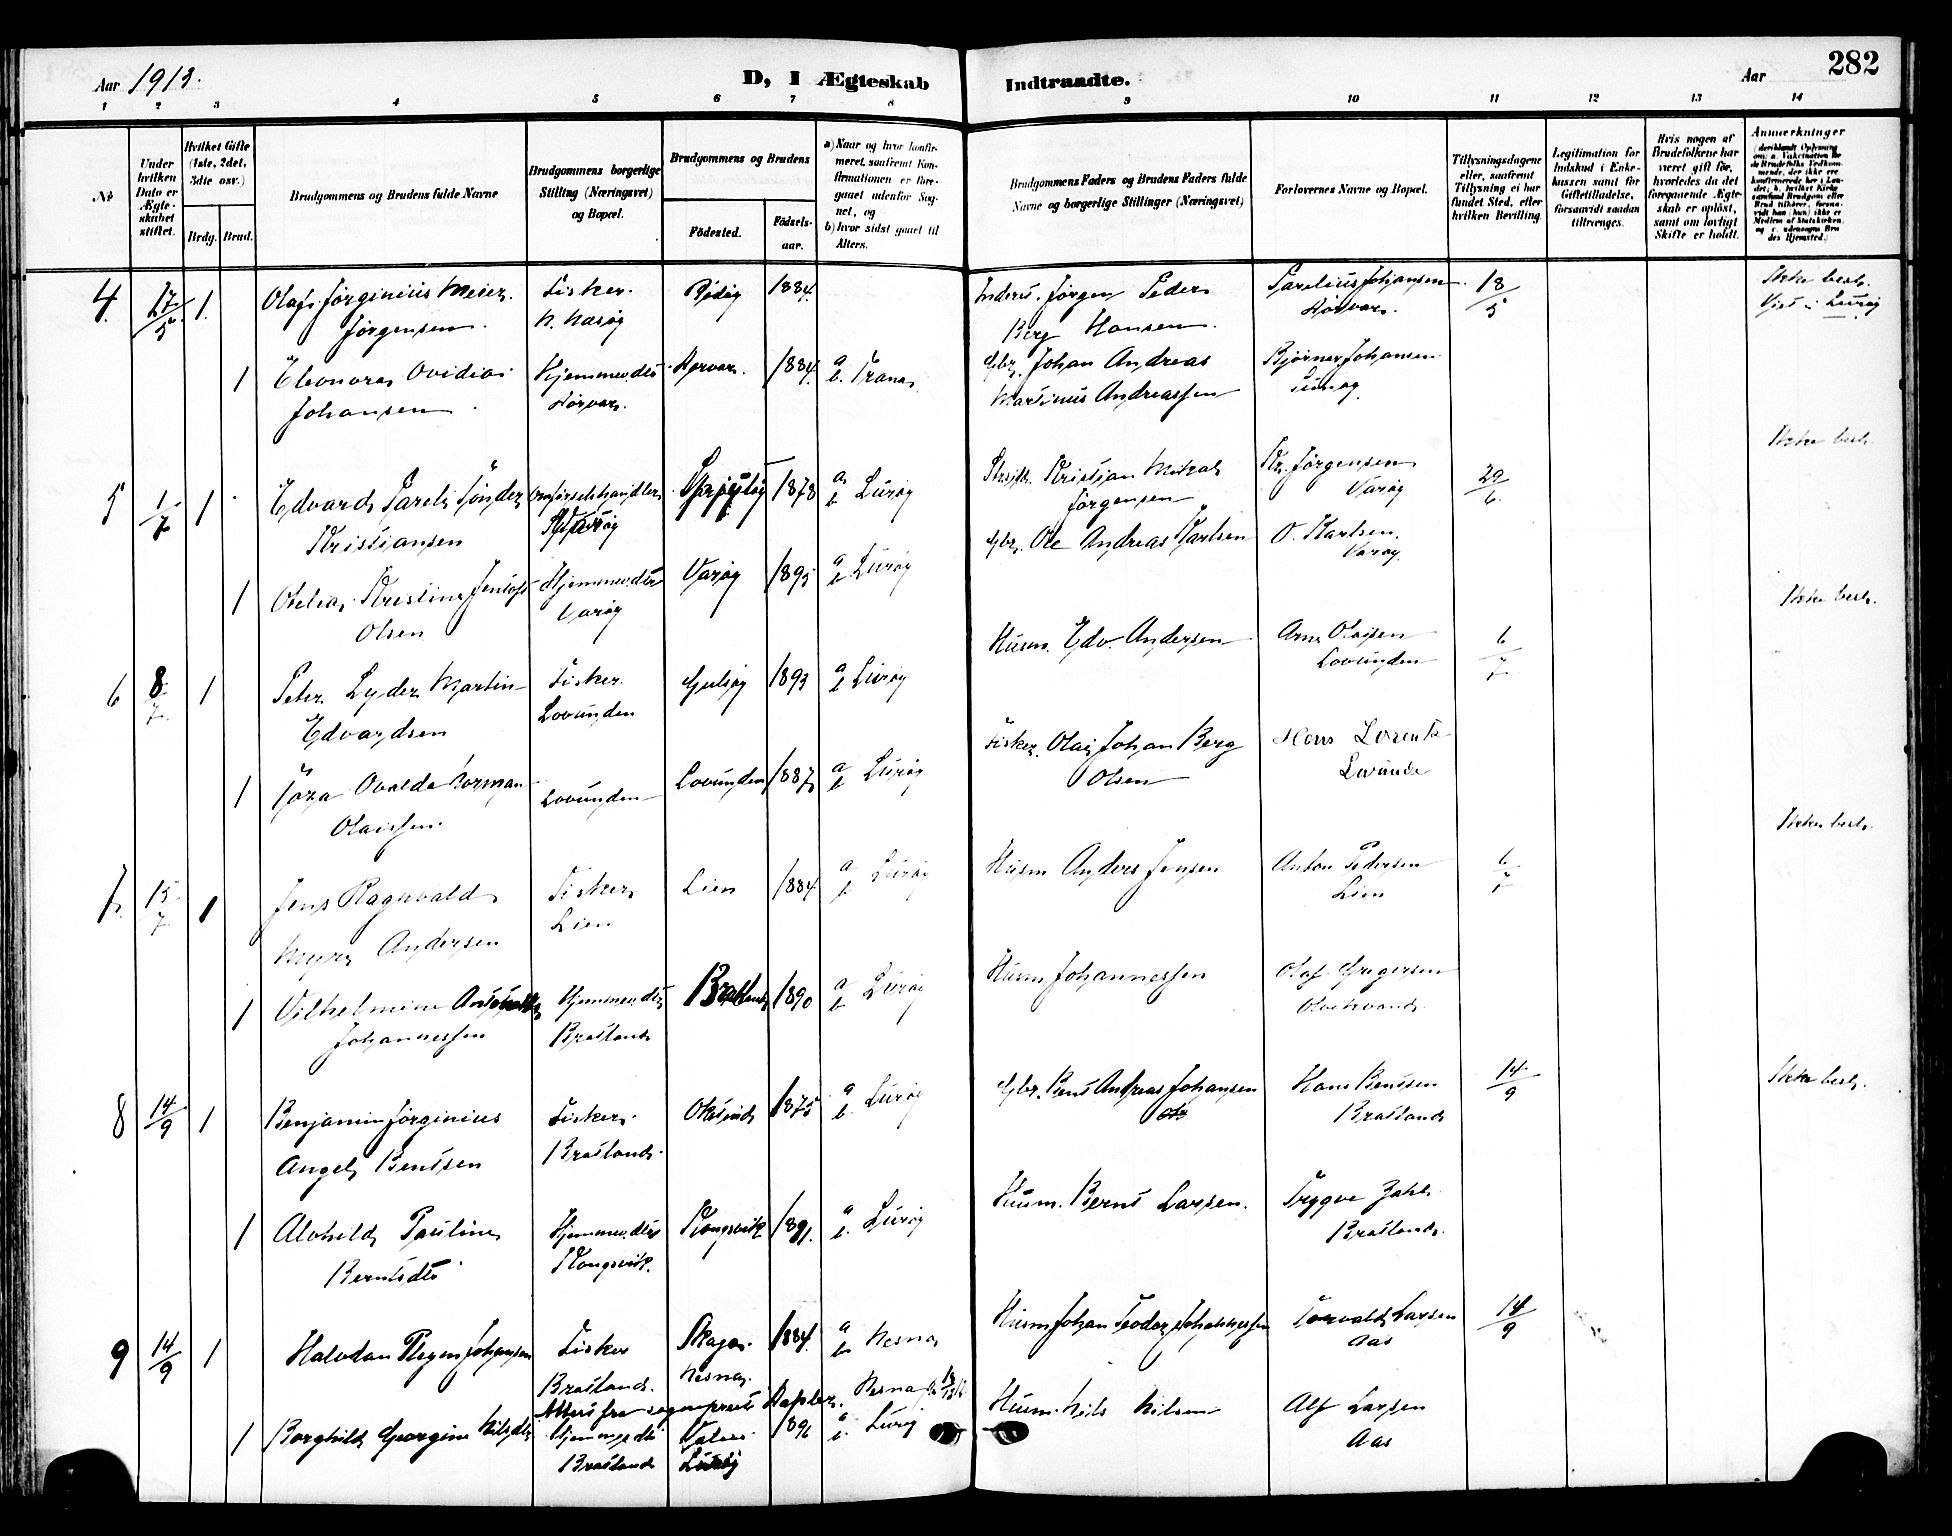 Aar 1913.
D, I Ægteskab Indtraadte.
Aar 282
1 2 3 4 5 6 7 8 9 10 11 12 13 14
No
Under hvilken Dato er Ægteskabet stiftet.
Hvilket Gifte (1ste, 2det, 3die osv.)
Brdg. Brud.
Brudgommens og Brudens fulde Navne
Brudgommens borgerlige Stilling (Næringsvei) og Bopæl.
Brudgommens og Brudens
Fødested. Fødselsaar.
a) Naar og hvor konfirmeret, saafremt Konfirmationen er foregaaet udenfor Sognet, og
b) hvor sidst gaaet til Alters.
Brudgommens Faders og Brudens Faders fulde Navne og borgerlige Stillinger (Næringsvei)
Forlovernes Navne og Bopæl.
Tillysningsdagene eller, saafremt Tillysning ei har fundet Sted, efter hvilken Bevilling.
Legitimation for Indskud i Enkekassen samt for Giftetilladelse, forsaavidt saadan tiltrænges.
Hvis nogen af Brudefolkene har været gift før, hvorledes da det foregaaende Ægteskab er opløst, samt om lovligt Skifte er holdt.
Anmerkninger
4. 17/5 1. Olaf Jørginius Meier Fisker. Rødøy 1884. Jørgen Peder Parelius Johansen 18/5 Ikke besl.
Jørgensen N. Nasøy Berg Hansen. Hørvær. Viet i Lurøy
1 Eleonora Ovidia Hjemmev. dtr 1884. a b. Træna Gbr. Johan Andreas Bjørner Johansen
Johansen Martinus Andreassen
Ikke besl.
5 1/7 1 Edvard Pareli Tønder 1878 a b Lurøy Kristian Mikal Kr. Jørgensen 29/6
Kristiansen Jørgensen Varøy
1 Otelia Kristine Jentoft Hjemmev. dtr Varøy 1895 a b. Lurøy Gbr. Ole Andreas Karlsen O. Karlsen.
Olsen Varøy Varøy
Ikke besl.
6 8/7 1 Peter Lyder Martin Fisker. 1893 a b Lurøy Husm. Edv. Andersen Arne Olaisen 6/7
Edvardsen Lovunden Lovunden
1 Ovalda Norman Lovunden Lovunden 1887 a b Lurøy Fisker. Olai Johan Berg Hans Lorents
Olaissen. Olsen Lovunde
Ikke besl.
7. 15/7 1 Jens Ragnvald Fisker Lien 1884 a b Lurøy Husm Anders Jensen Anton Pedersen 6/7
Myrz Andersen Lien Lien
1 Vilhelmine Hjemmev. dtr Bratland 1890 a b Lurøy Husm Johannessen Olaf Gregersen
Johannessen Bratland
8 14/9 1 Benjamin Jørginius Fisker. 1875 a b. Lurøy Gbr. Bent Andreas Johansen Hans Bentsen 14/9 Ikke besl.
Angel Bentsen Bratland. Bratland
1 Alvhild Pauline Hjemmev. dtr Kongsvik 1891. a b. Lurøy Husm. Bernt Larsen. Trygve Zahl
Berntsdtr Kongsvik. Bratland.
9 14/9 1 Halvdan Regen Johansen Fisker Skaga. 1884. a b Nesna Husm Johan Teodor Johannessen Torvald Larsen 14/9
Bratland. Nesna. Aas
Attest fra sogneprest
1 Borghild Georgine Nilsdtr Hjemmev. dtr 1896 a b. Lurøy Husm. Nils Nilsen Alf Larsen
Bratland Lurøy Aas